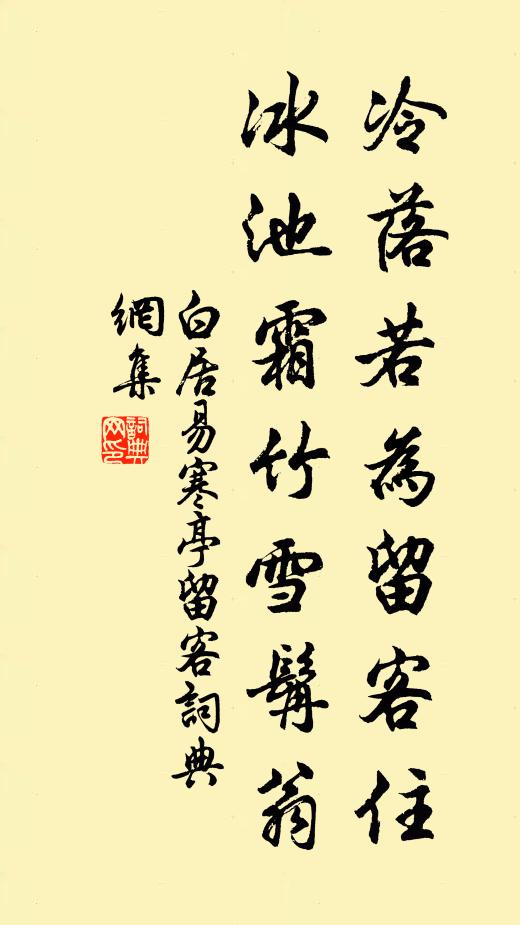 冷落若為留客住
冰池霜竹雪髯翁
白居易寒亭留客詞典
網集
詞典网印